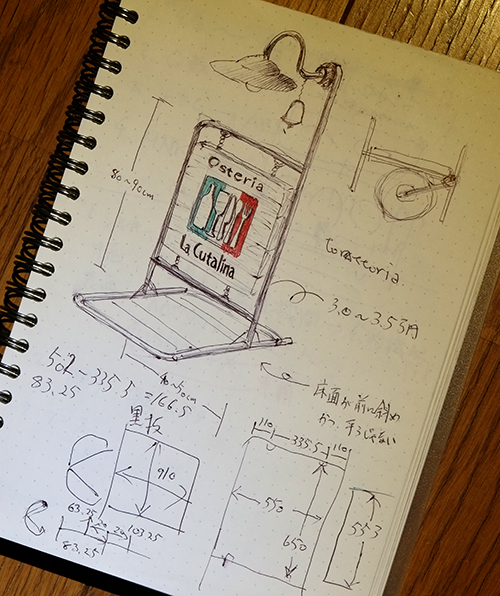 80~90cm
Osteria
La Cutalina
torattoria.
3.0~3.5万円
502-335.5
=166.5
83.25
床面が前に斜め
かつ、平らじゃない
黒板
910
63.25
20
20
103.25
83.25
110
335.5
110
550
650
553